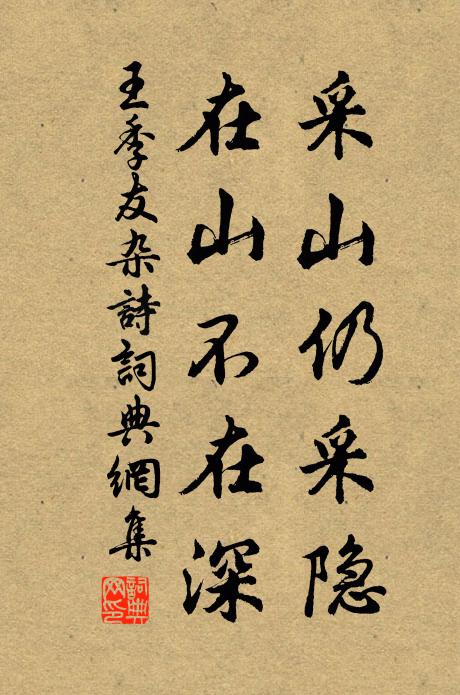 采山仍采隐
在山不在深
王季友杂詩詞典網集
詞典
网印